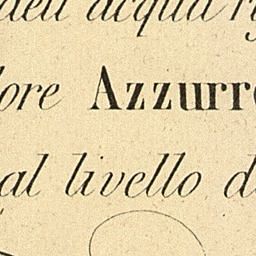 dell'acqua ri
lore Azzurro
al livello d